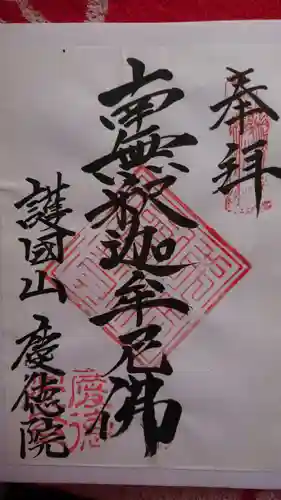 奉拝
南無釈迦牟尼佛
護国山 慶徳院